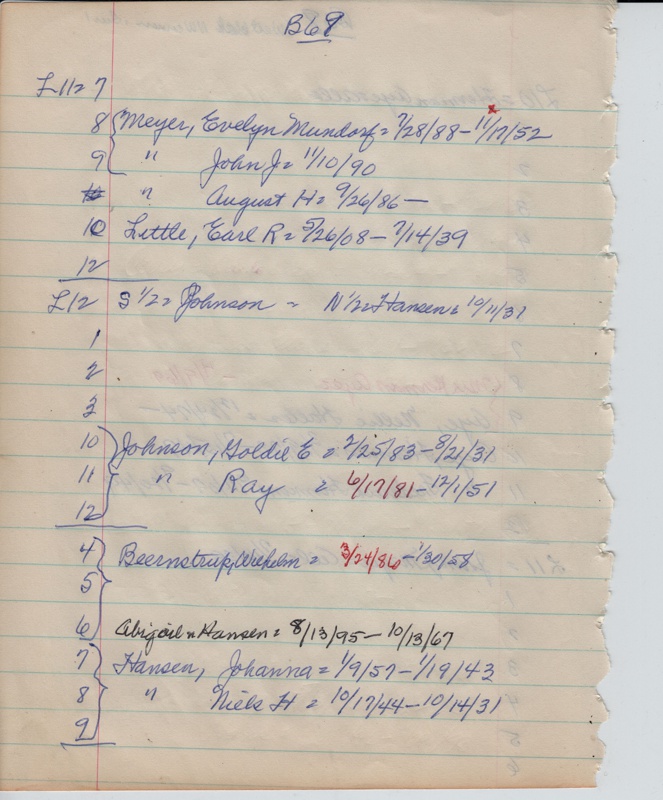 B69
L11= 7
8 Meyer, Evelyn Mundorf = 7/28/88 - 11/17/52
x
9 " John J = 11/10/90
" August H = 9/26/86 —
10 Little, Earl R = 5/26/08 - 7/14/39
12
L12 S 1/2 = Johnson = N 1/2 = Hansen = 10/11/31
1
2
3
10 Johnson, Goldie E = 2/25/83 - 8/21/31
11 " Ray = 6/17/81 - 12/1/51
12
4 Beernstrup, = 3/24/86 - 1/30/58
5
6 Abigail Hansen = 8/13/95 - 10/13/67
7 Hansen, Johanna = 1/9/57 - 1/19/43
8 " Niels H = 10/17/44 - 10/14/31
9